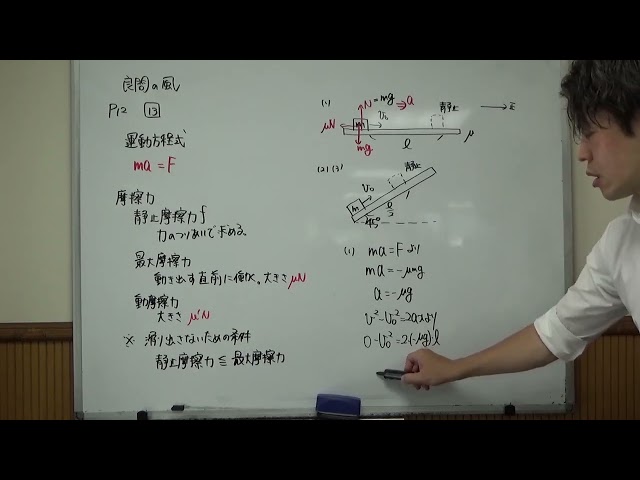 良問の風
P12 13
運動方程式
ma = F
摩擦力
静止摩擦力 f
力のつりあいで求める。
最大摩擦力
動き出す直前に働く。大きさ μN
動摩擦力
大きさ μ'N
※ 滑り出さないための条件
静止摩擦力 ≦ 最大摩擦力
(1)
N = mg
a
静止
μN
m
v₀
mg
l
μ
(2)(3)
静止
v₀
m
l/2
45°
(1) ma = F より
ma = -μmg
a = -μg
v²-v₀² = 2ax より
0-v₀² = 2(-μg)l